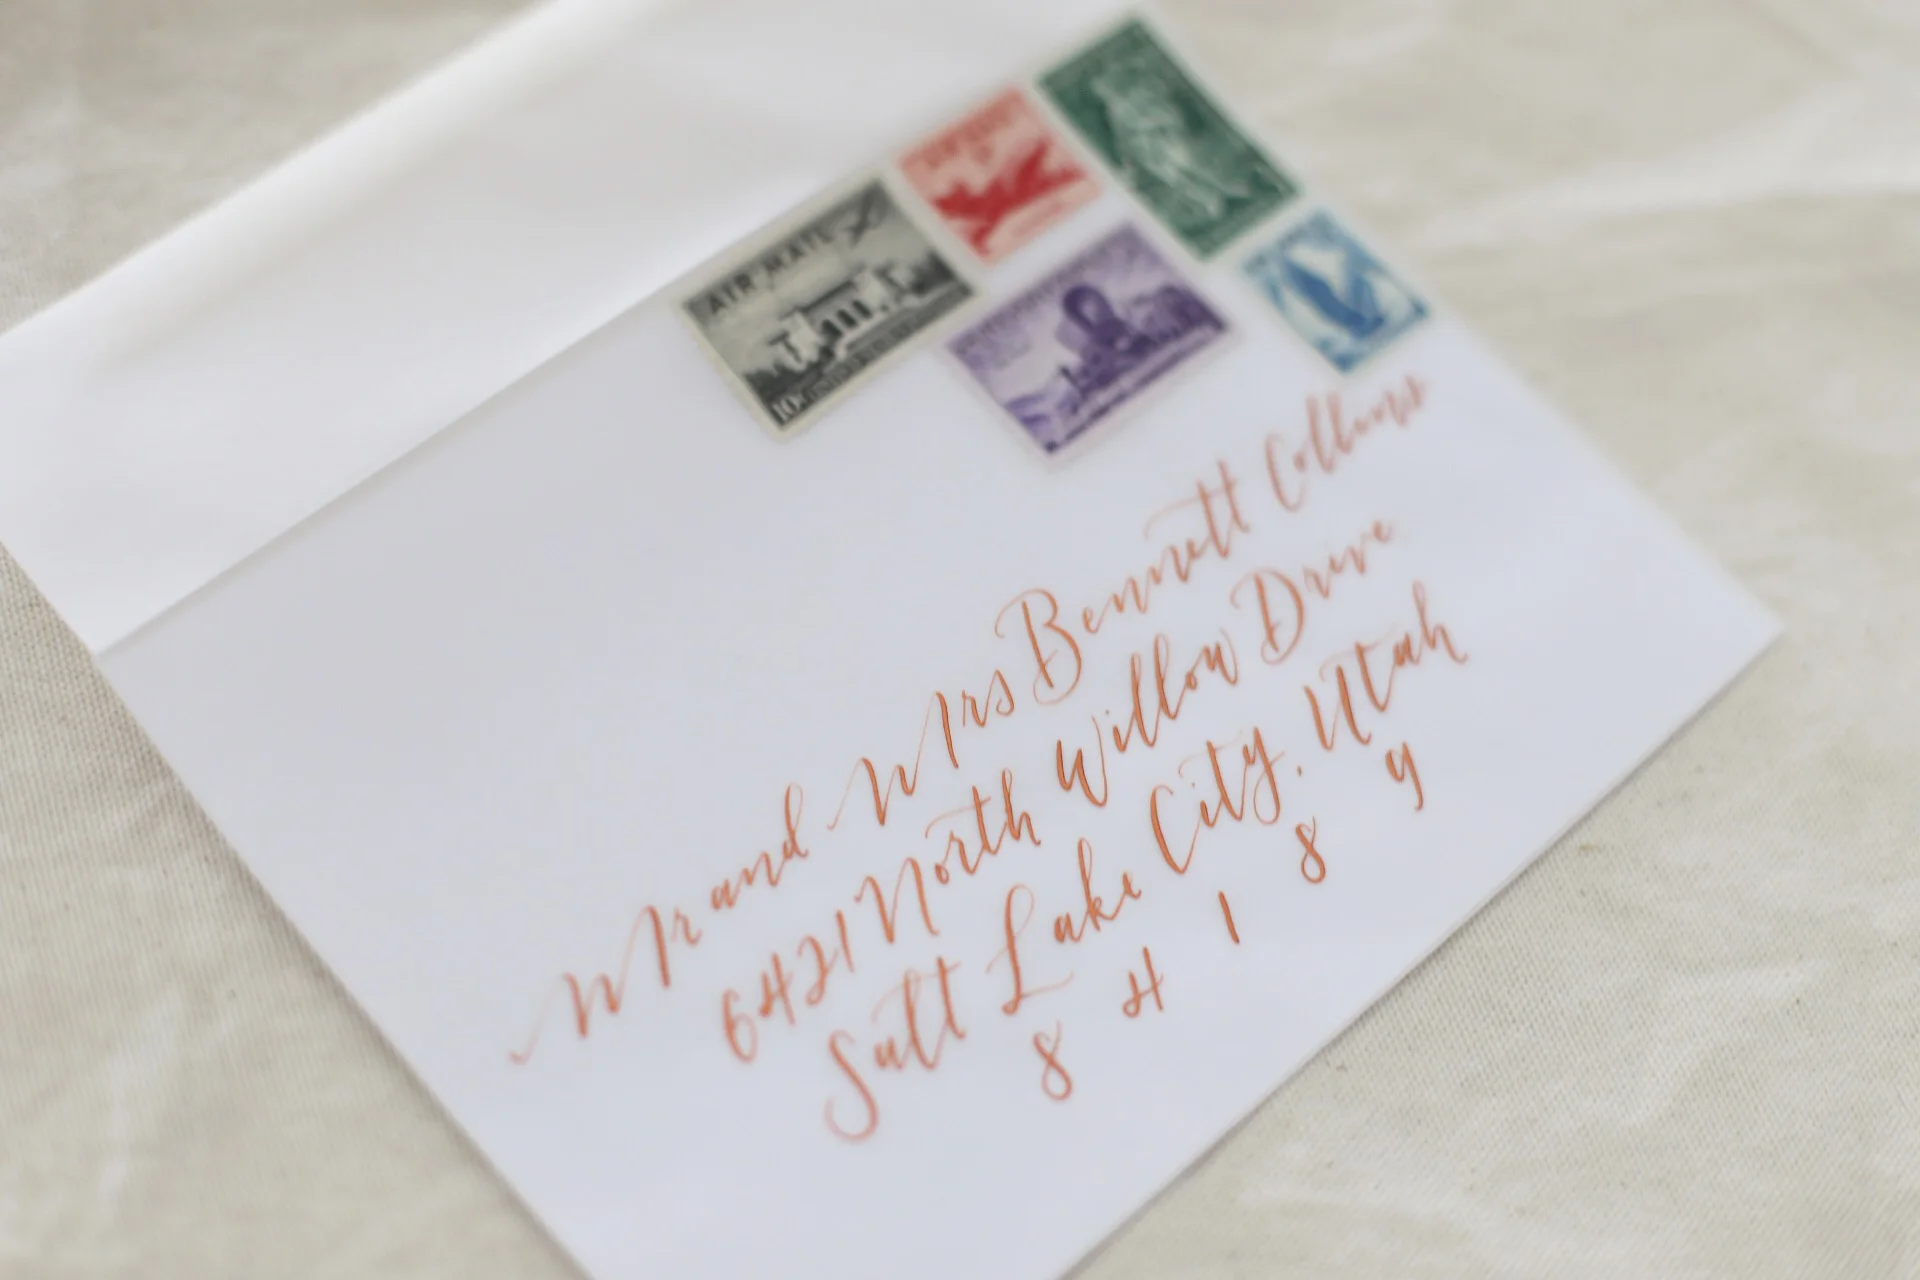 AIR MAIL
10¢
Mr and Mrs Bennett Collins
6421 North Willow Drive
Salt Lake City, Utah
8 4 1 8 9